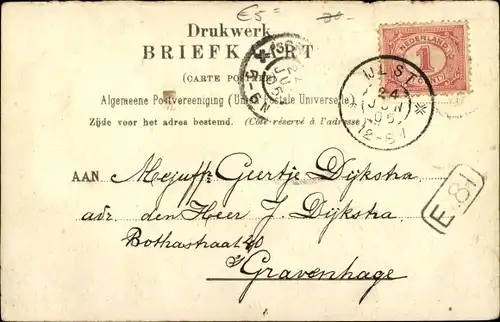 €5=
Drukwerk
BRIEFKAART
(CARTE POSTALE)
Algemeene Postvereeniging (Union Postale Universelle)
Zijde voor het adres bestemd. (Côté réservé à l'adresse)
NEDERLAND
1
IJLST
24
JUN
06
12-6N
5-6N
E 81
AAN Mejuffr Geertje Dijkstra
adr. den Heer J. Dijkstra
Bothastraat 20
s/Gravenhage